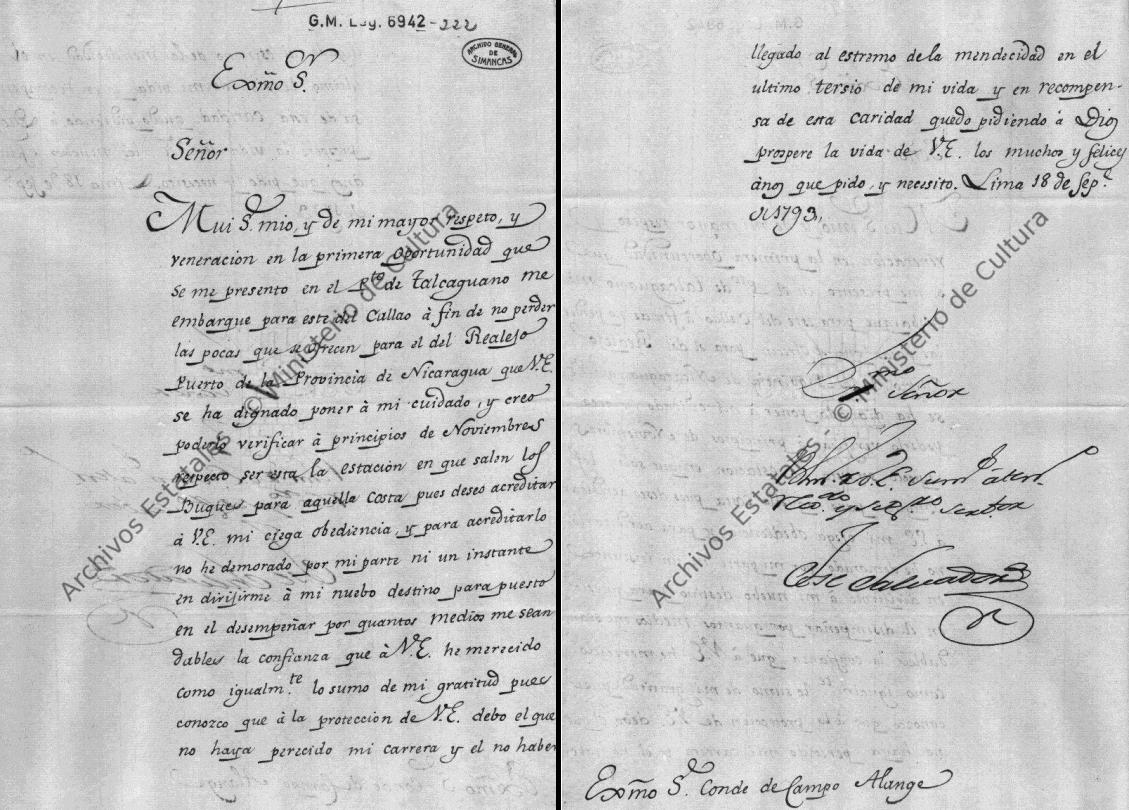 G.M. Leg. 6942-222
ARCHIVO GENERAL
DE
SIMANCAS
Exm̃o S.ᵒʳ
Señor
Mui S.ᵒʳ mio, y de mi mayor respeto, y
veneracion en la primera oportunidad que
se me presento en el P.ᵗᵒ de Talcaguano me
embarque para este del Callao à fin de no perder
las pocas que se ofrecen para el del Realejo
Puerto de la Provincia de Nicaragua que V.E.
se ha dignado poner à mi cuidado, y creo
poderlo verificar à principios de Noviembre
respecto ser esta la estación en que salen los
Buques para aquella Costa pues deseo acreditar
à V.E. mi ciega obediencia, y para acreditarlo
no he demorado por mi parte ni un instante
en dirijirme à mi nuebo destino para puesto
en el desempeñar por quantos medios me sean
dables la confianza que à V.E. he merecido
como igualm.ᵗᵉ lo sumo de mi gratitud pues
conozco que à la protección de V.E. debo el que
no haya perecido mi carrera y el no haber
llegado al estremo de la mendecidad en el
ultimo tersio de mi vida y en recompen-
sa de esta caridad quedo pidiendo à Dios
prospere la vida de V.E. los muchos y felices
àños que pido, y necesito. Lima 18 de Sep.ᵉ
de 1793,,
Señor
B.L.M. de V.E. su m.ˢ àten
Jose Salvador
Exm̃o S.ᵒʳ Conde de Campo Alange
Archivos Estatales © Ministerio de Cultura
Archivos Estatales © Ministerio de Cultura